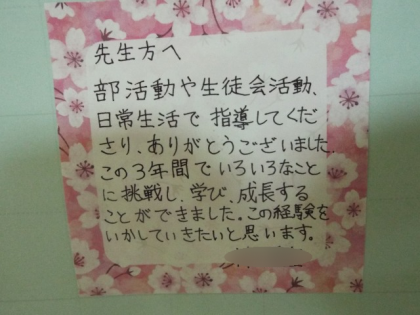 先生方へ
部活動や生徒会活動、
日常生活で指導してくだ
さり、ありがとうございました
この3年間でいろいろなこと
に挑戦し、学び、成長する
ことができました。この経験を
いかしていきたいと思います。